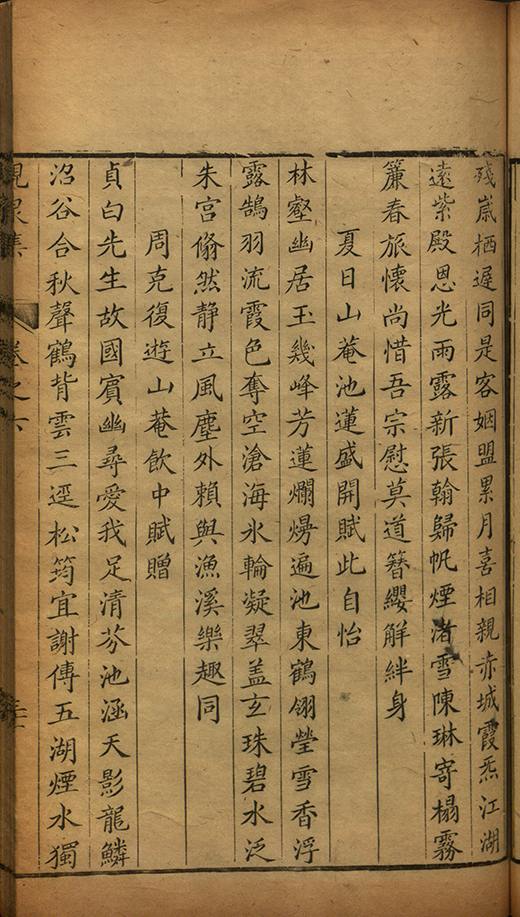 殘嵗栖遲同是客姻盟累月喜相親赤城霞炁江湖
遠紫殿恩光雨露新張翰歸帆煙渚雪陳琳寄榻霧
簾春旅懷尚惜吾宗慰莫道簪纓解絆身
夏日山菴池蓮盛開賦此自怡
林壑幽居玉幾峰芳蓮爛熳遍池東鶴翎瑩雪香浮
露鵠羽流霞色奪空滄海氷輪凝翠盖玄珠碧水泛
朱宮翛然静立風塵外賴與漁溪樂趣同
周克復遊山菴飲中賦贈
貞白先生故國賓幽尋愛我足清芬池涵天影龍鱗
沼谷合秋聲鶴背雲三逕松筠宜謝傅五湖煙水獨
峴泉集 卷之六